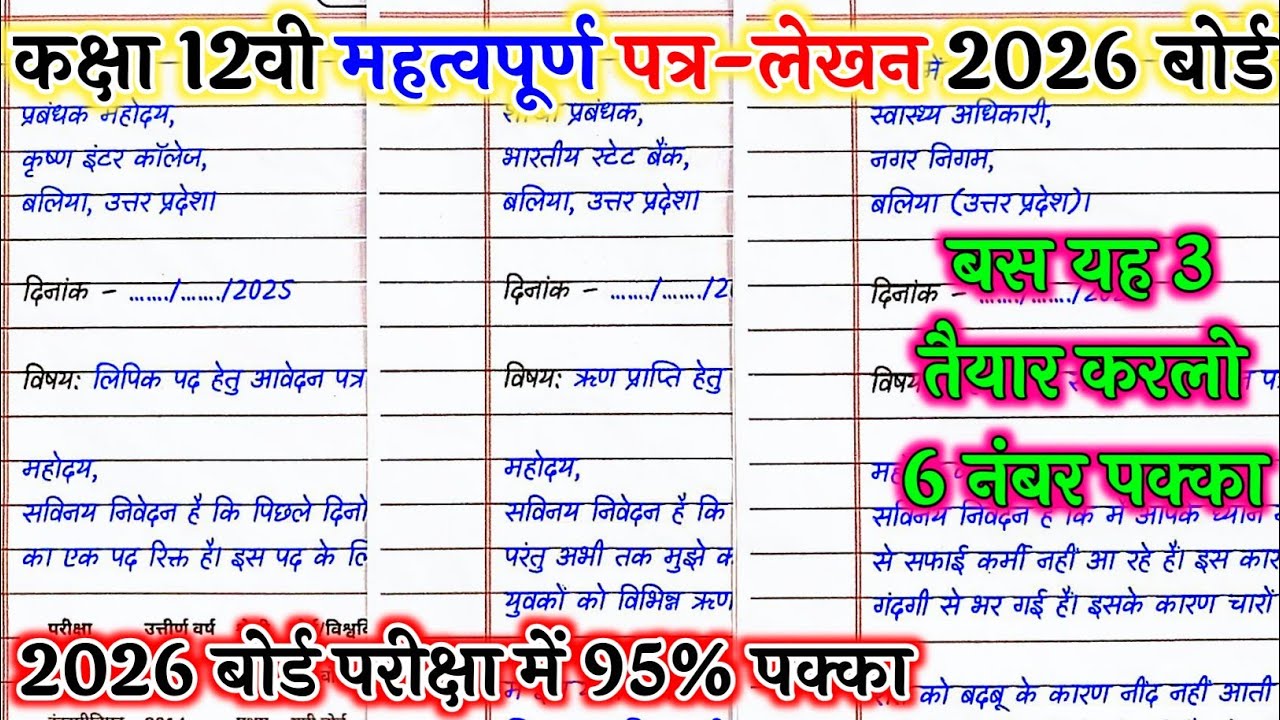 कक्षा 12वी महत्वपूर्ण पत्र-लेखन 2026 बोर्ड
प्रबंधक महोदय,
कृष्ण इंटर कॉलेज,
बलिया, उत्तर प्रदेश।
दिनांक - ......./......./2025
विषय: लिपिक पद हेतु आवेदन पत्र
महोदय,
सविनय निवेदन है कि पिछले दिनो
का एक पद रिक्त है। इस पद के
परीक्षा उत्तीर्ण वर्ष
प्रबंधक,
भारतीय स्टेट बैंक,
बलिया, उत्तर प्रदेश।
दिनांक - ......./......./2
विषय: ऋण प्राप्ति हेतु
महोदय,
सविनय निवेदन है कि
परंतु अभी तक मुझे
युवकों को विभिन्न ऋण
में
स्वास्थ्य अधिकारी,
नगर निगम,
बलिया (उत्तर प्रदेश)।
दिनांक -
सविनय निवेदन है कि मैं आपके ध्यान
से सफाई कर्मी नहीं आ रहे हैं। इस कार
गंदगी से भर गई है। इसके कारण चारों
को बदबू के कारण नींद नहीं आती
बस यह 3
तैयार करलो
6 नंबर पक्का
2026 बोर्ड परीक्षा में 95% पक्का